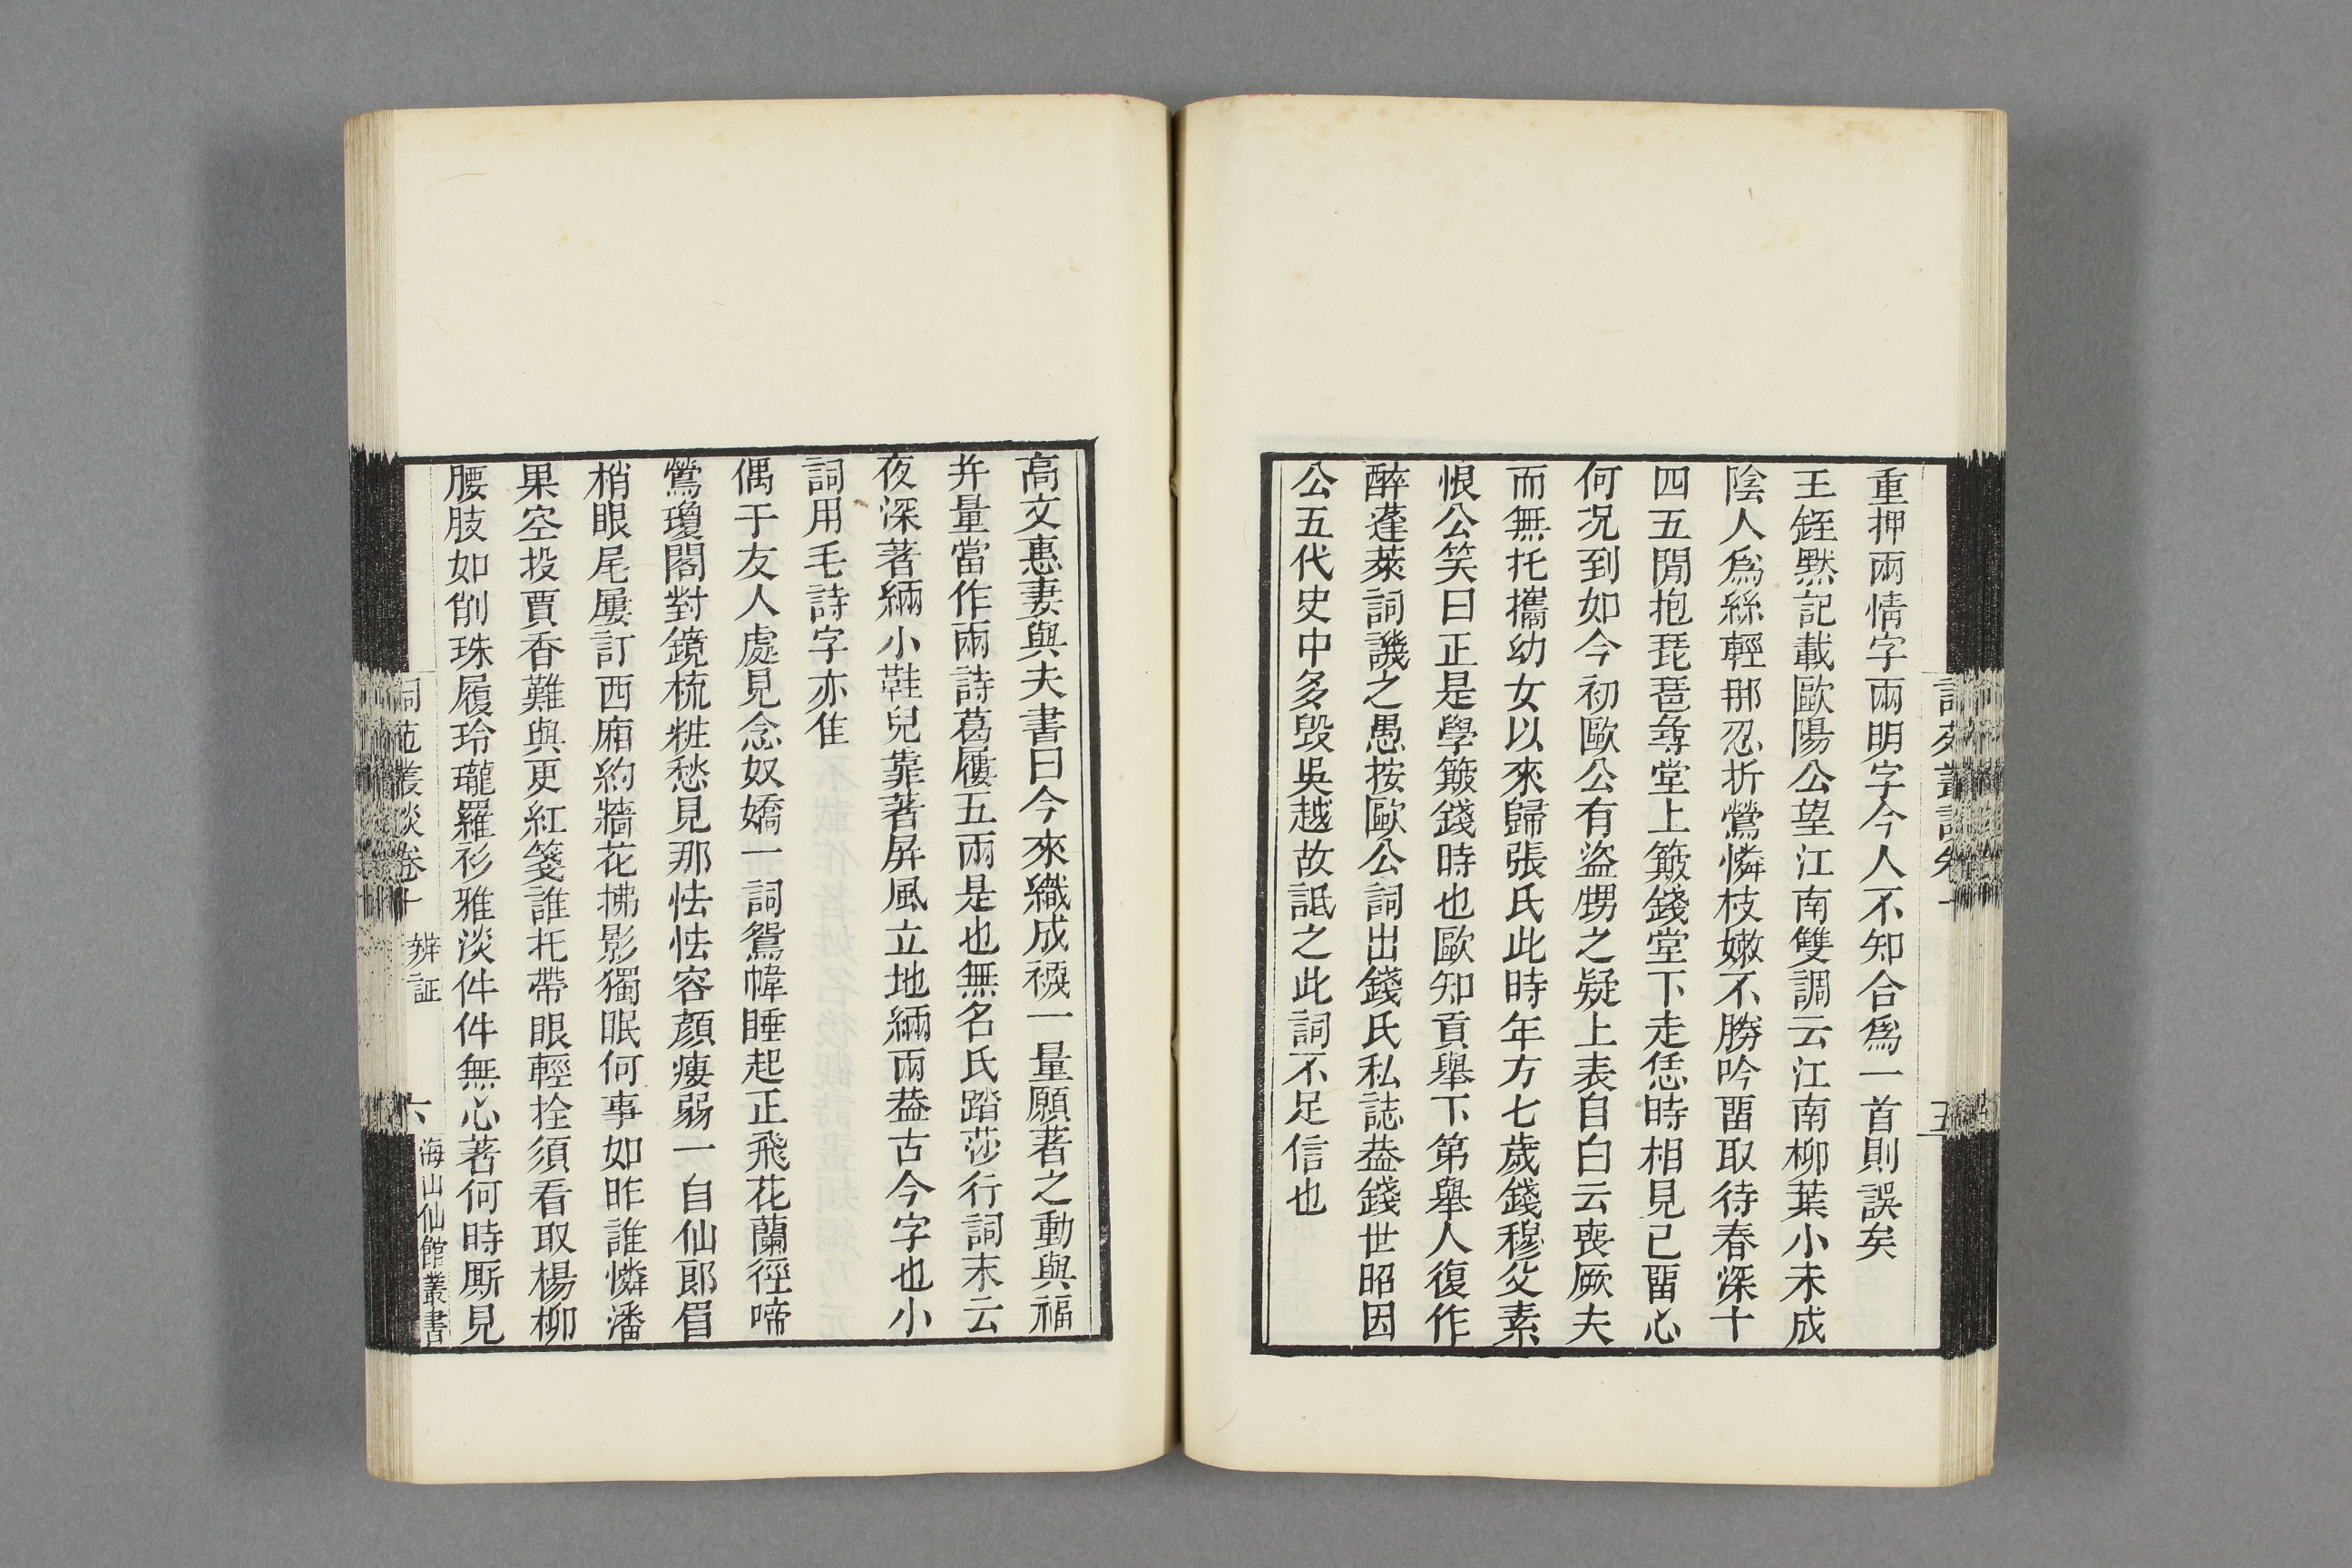 重押兩情字兩明字今人不知合爲一首則誤矣
王銍黙記載歐陽公望江南雙調云江南柳葉小未成
陰人爲絲輕那忍折鶯憐枝嫩不勝吟畱取待春深十
四五閒抱琵琶尋堂上簸錢堂下走恁時相見已畱心
何况到如今初歐公有盜甥之疑上表自白云喪厥夫
而無托攜幼女以來歸張氏此時年方七歲錢穆父素
恨公笑曰正是學簸錢時也歐知貢舉下第舉人復作
醉蓬萊詞譏之愚按歐公詞出錢氏私誌葢錢世昭因
公五代史中多毁吳越故詆之此詞不足信也
五
高文惠妻與夫書曰今來織成襪一量願著之動與福
并量當作兩詩葛屨五兩是也無名氏踏莎行詞末云
夜深著緉小鞋兒靠著屏風立地緉兩葢古今字也小
詞用毛詩字亦隹
偶于友人處見念奴嬌一詞鴛幃睡起正飛花蘭徑啼
鶯瓊閣對鏡梳粧愁見那怯怯容顏瘦弱一自仙郎眉
梢眼尾屢訂西廂約牆花拂影獨眠何事如昨誰憐潘
果空投賈香難與更紅箋誰托帶眼輕拴須看取楊柳
腰肢如削珠履玲瓏羅衫雅淡件件無心著何時厮見
詞苑叢談卷十 辨証 六 海山仙館叢書